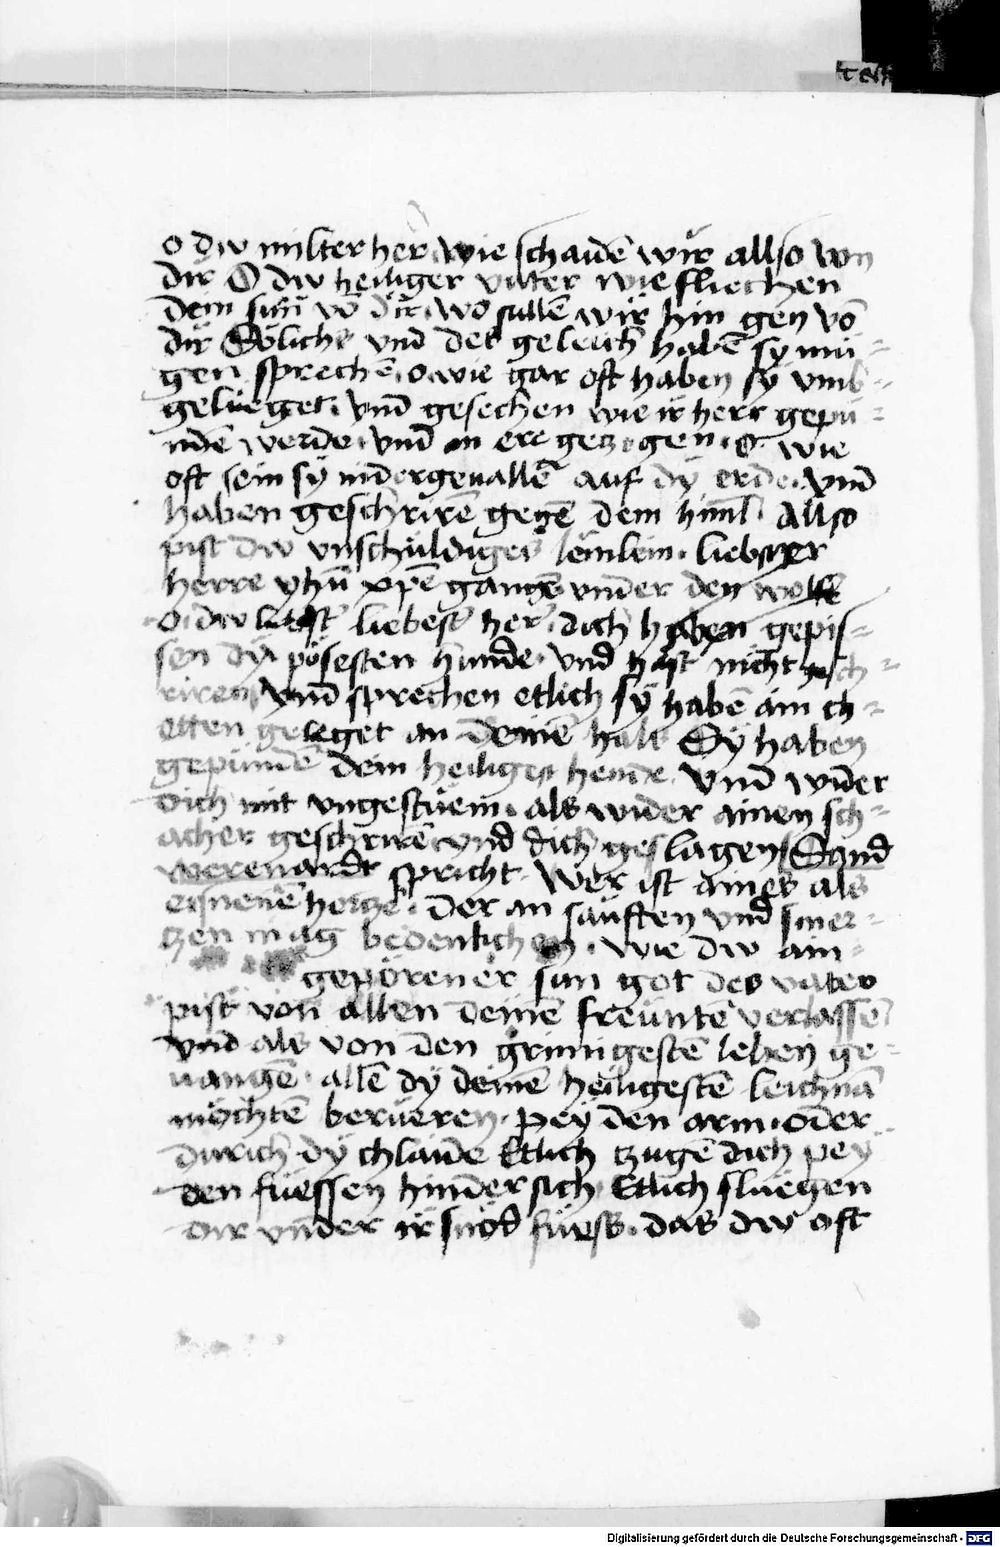 o dw milter her wie schaidē wir allso von
dir O dw heiliger vater wie fliechen
dein sün vō dir. wo sullē wir hin gen vō
dir Söliche vnd des geleich habē sy mü-
gen sprechē. o wie gar oft haben sy vmb-
gelueget. vnd gesechen wie ir herr gepu-
ndē werde. vnd an ere getzogen. O wie
oft sein sy nidergeuallē auf dy erde. vnd
haben geschrirē gegē dem himl. Allso
pist dw vnschuldiges lemlein. liebster
herre yhū xpē gangē vnder den wolffē
o dw liebster her. dich haben gepis-
sen dy pösesten hunde. vnd hast nicht gesch-
riren vnd sprechen etlich sy habē ain ch-
etten geleget an deinē hals Sy haben
gepundē dein heiligen hende vnd wider
dich mit vngestuem. als wider ainen sch-
acher geschrirē. vnd dich geslagen Sand
werenardt spricht. Wer ist aines als
eisneinē hertze. Der an säuften vnd smer-
tzen mag bedenkchen. wie dw ain
gepörener sun got des vaters
pist von allen deinē freuntē verlassē
vnd als von den grimigestē leben ge-
uangē. allē dy deinē heiligestē leichnā
möchtē berüeren. pey den arm. oder
durich dy chlaide Etlich tzugē dich pey
den füessen hinder sich Etlich sluegen
dir vnder ir snöd füess. das dw oft
Digitalisierung gefördert durch die Deutsche Forschungsgemeinschaft - DFG